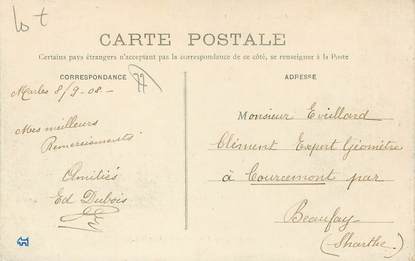 lot
CARTE POSTALE
Certains pays étrangers n'acceptant pas la correspondance de ce côté, se renseigner à la Poste
CORRESPONDANCE
ADRESSE
Marles 8/9-08-
Mes meilleurs
Remerciements
Amitiés
Ed Dubois
Monsieur Eveillard
Climent Expert Géomètre
à Courcemont par
Beaufay
(Sharthe)